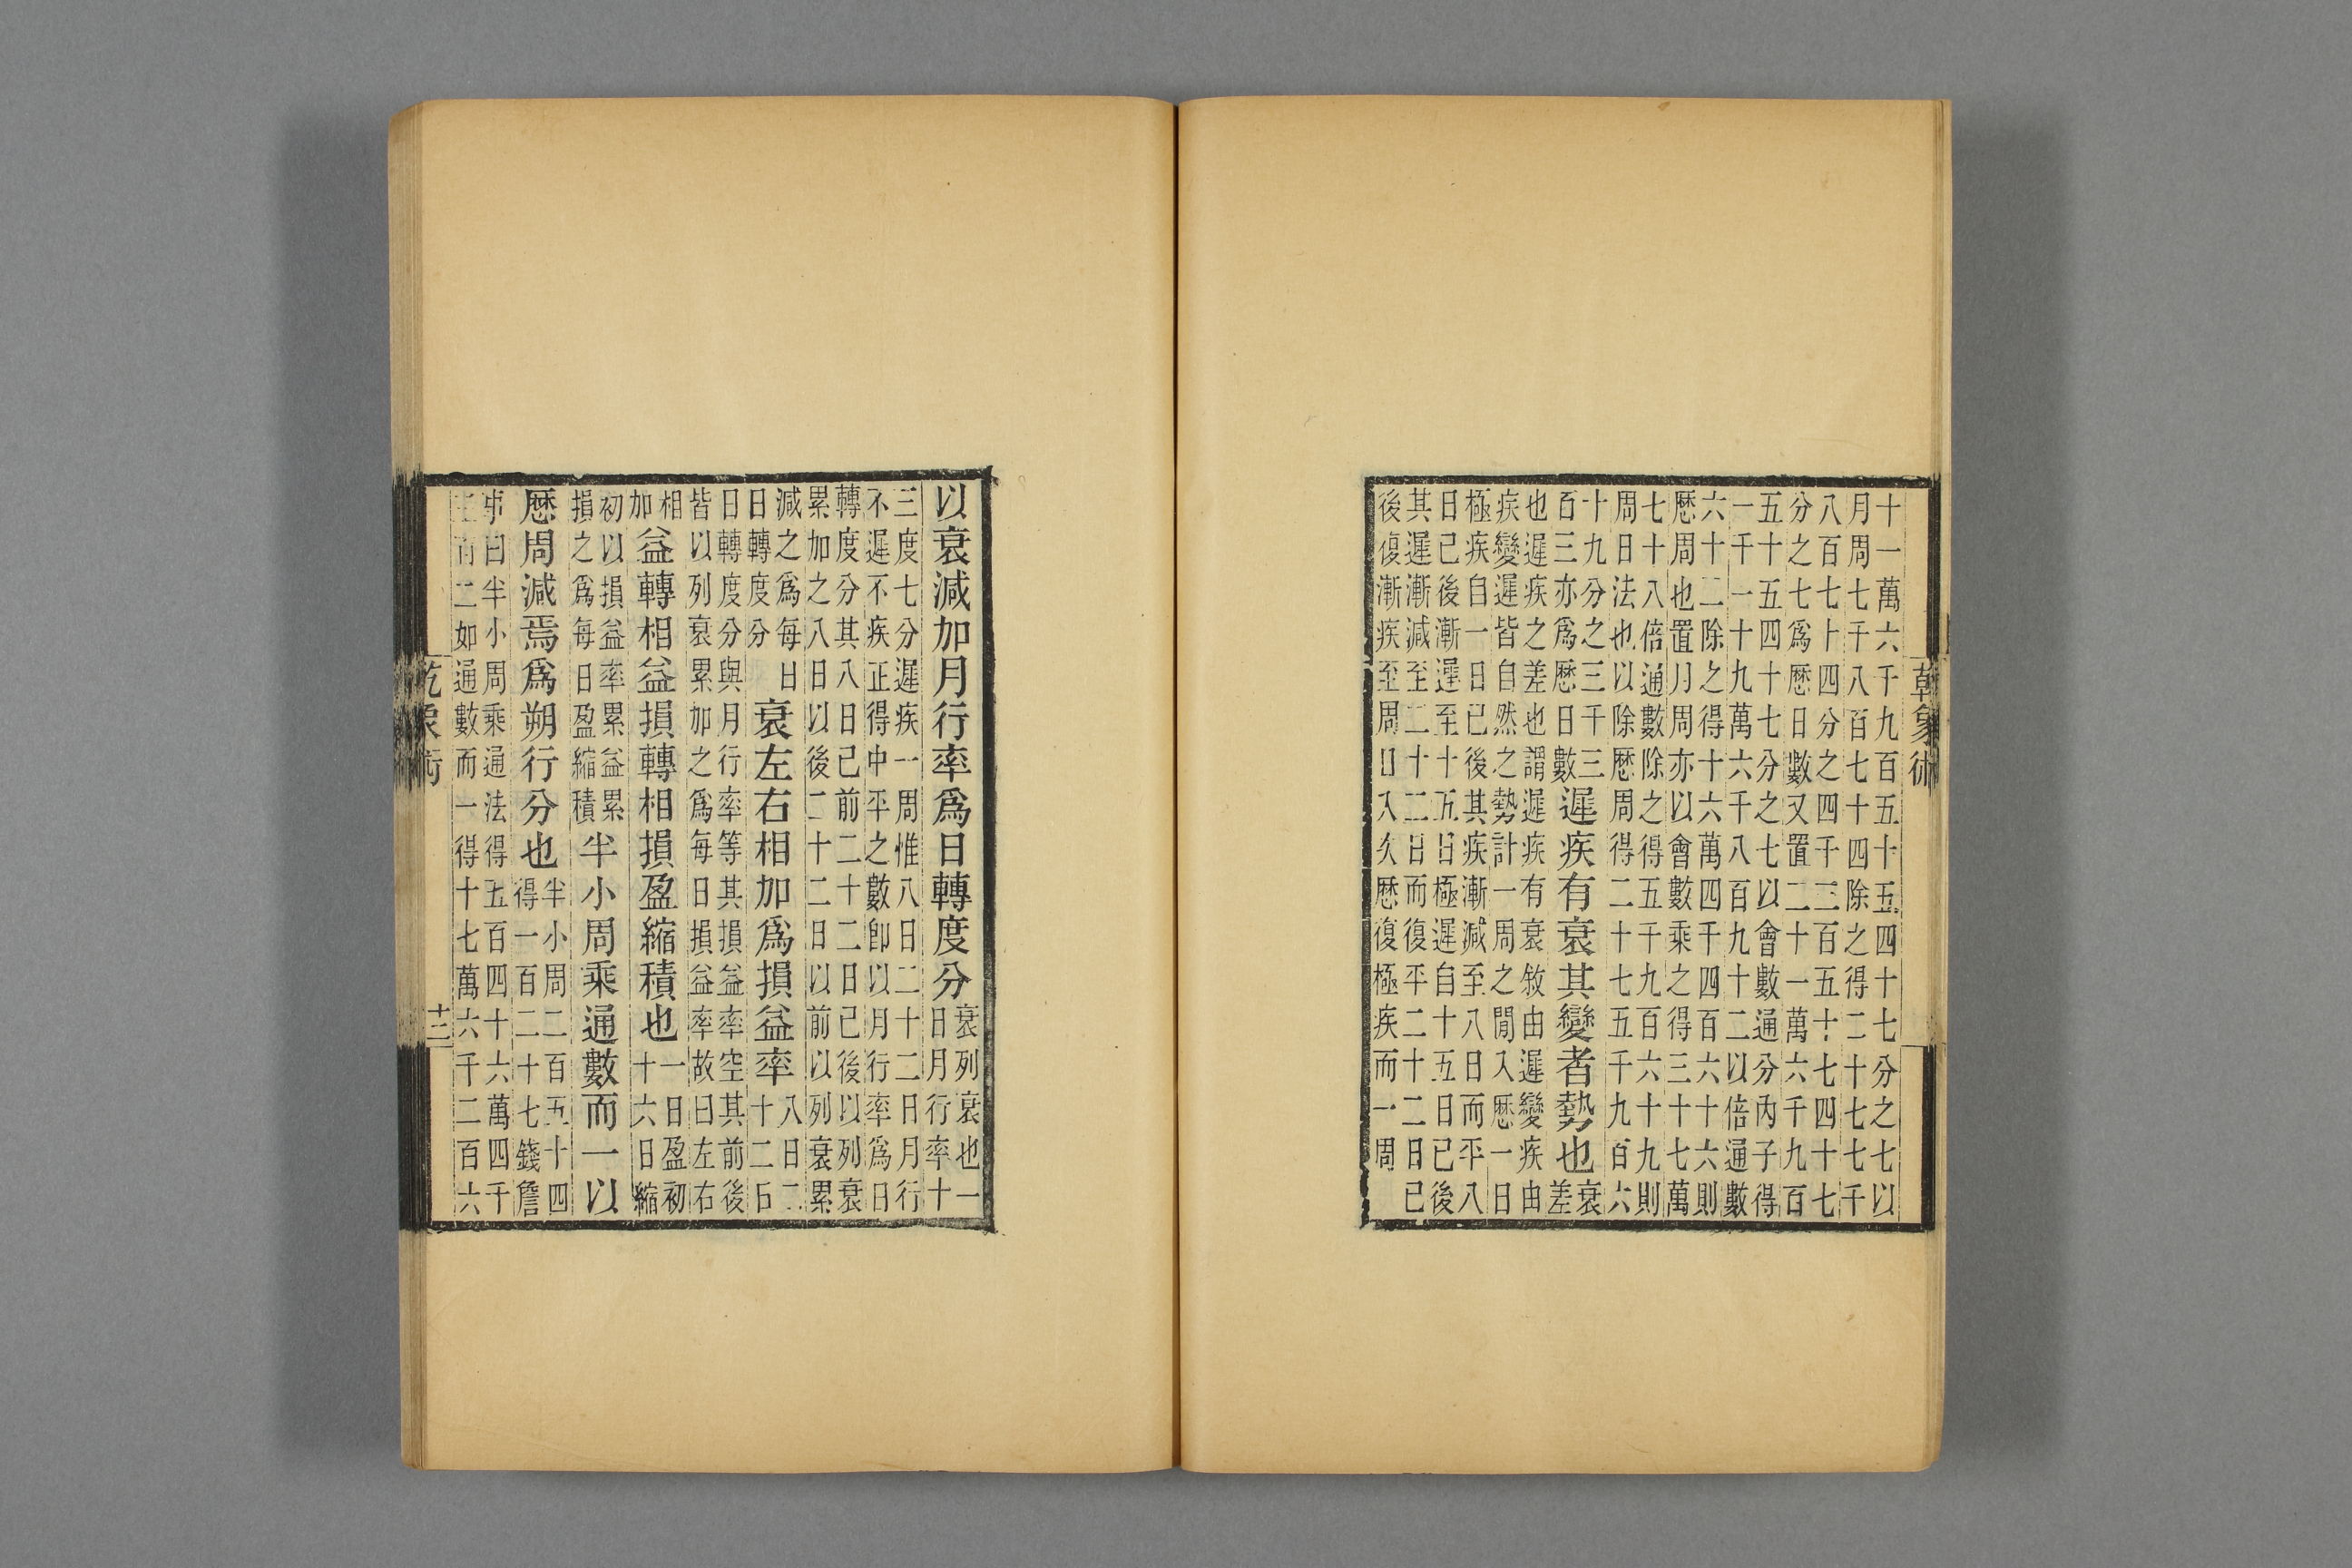 乾象術
十一萬六千九百五十五四十七分之七以
月周七千八百七十四除之得二十七七千
八百七十四分之四千三百五十七四十七
分之七爲厯日數又置二十一萬六千九百
五十五四十七分之七以會數通分內子得
一千一十九萬六千八百九十二以倍通數
六十二除之得十六萬四千四百六十六則
厯周也置月周亦以會數乘之得三十七萬
七十八倍通數除之得五千九百六十九則
周日法也以除厯周得二十七五千九百六
十九分之三千三
百三亦爲厯日數
遲疾有衰其變者勢也
衰
差
也遲疾之差也謂遲疾有衰敘由遲變疾由
疾變遲皆自然之勢計一周之閒入厯一日
極疾自一日已後其疾漸減至八日而平八
日已後漸遲至十五日極遲自十五日已後
其遲漸減至二十二日而復平二十二日已
後復漸疾至周日入次厯復極疾而一周
以衰減加月行率爲日轉度分
衰列衰也一
日月行率十
三度七分遲疾一周惟八日二十二日月行
不遲不疾正得中平之數卽以月行率爲日
轉度分其八日已前二十二日已後以列衰
累加之八日以後二十二日以前以列衰累
減之爲每日
日轉度分
衰左右相加爲損益率
八日二
十二日
日轉度分與月行率等其損益率空其前後
皆以列衰累加之爲每日損益率故曰左右
相
加
益轉相益損轉相損盈縮積也
一日盈初
十六日縮
初以損益率累益累
損之爲每日盈縮積
半小周乘通數而一以
厯周減焉爲朔行分也
半小周二百五十四
得一百二十七錢詹
事曰半小周乘通法得五百四十六萬四千
二如通數而一得十七萬六千二百六
乾象術
十三